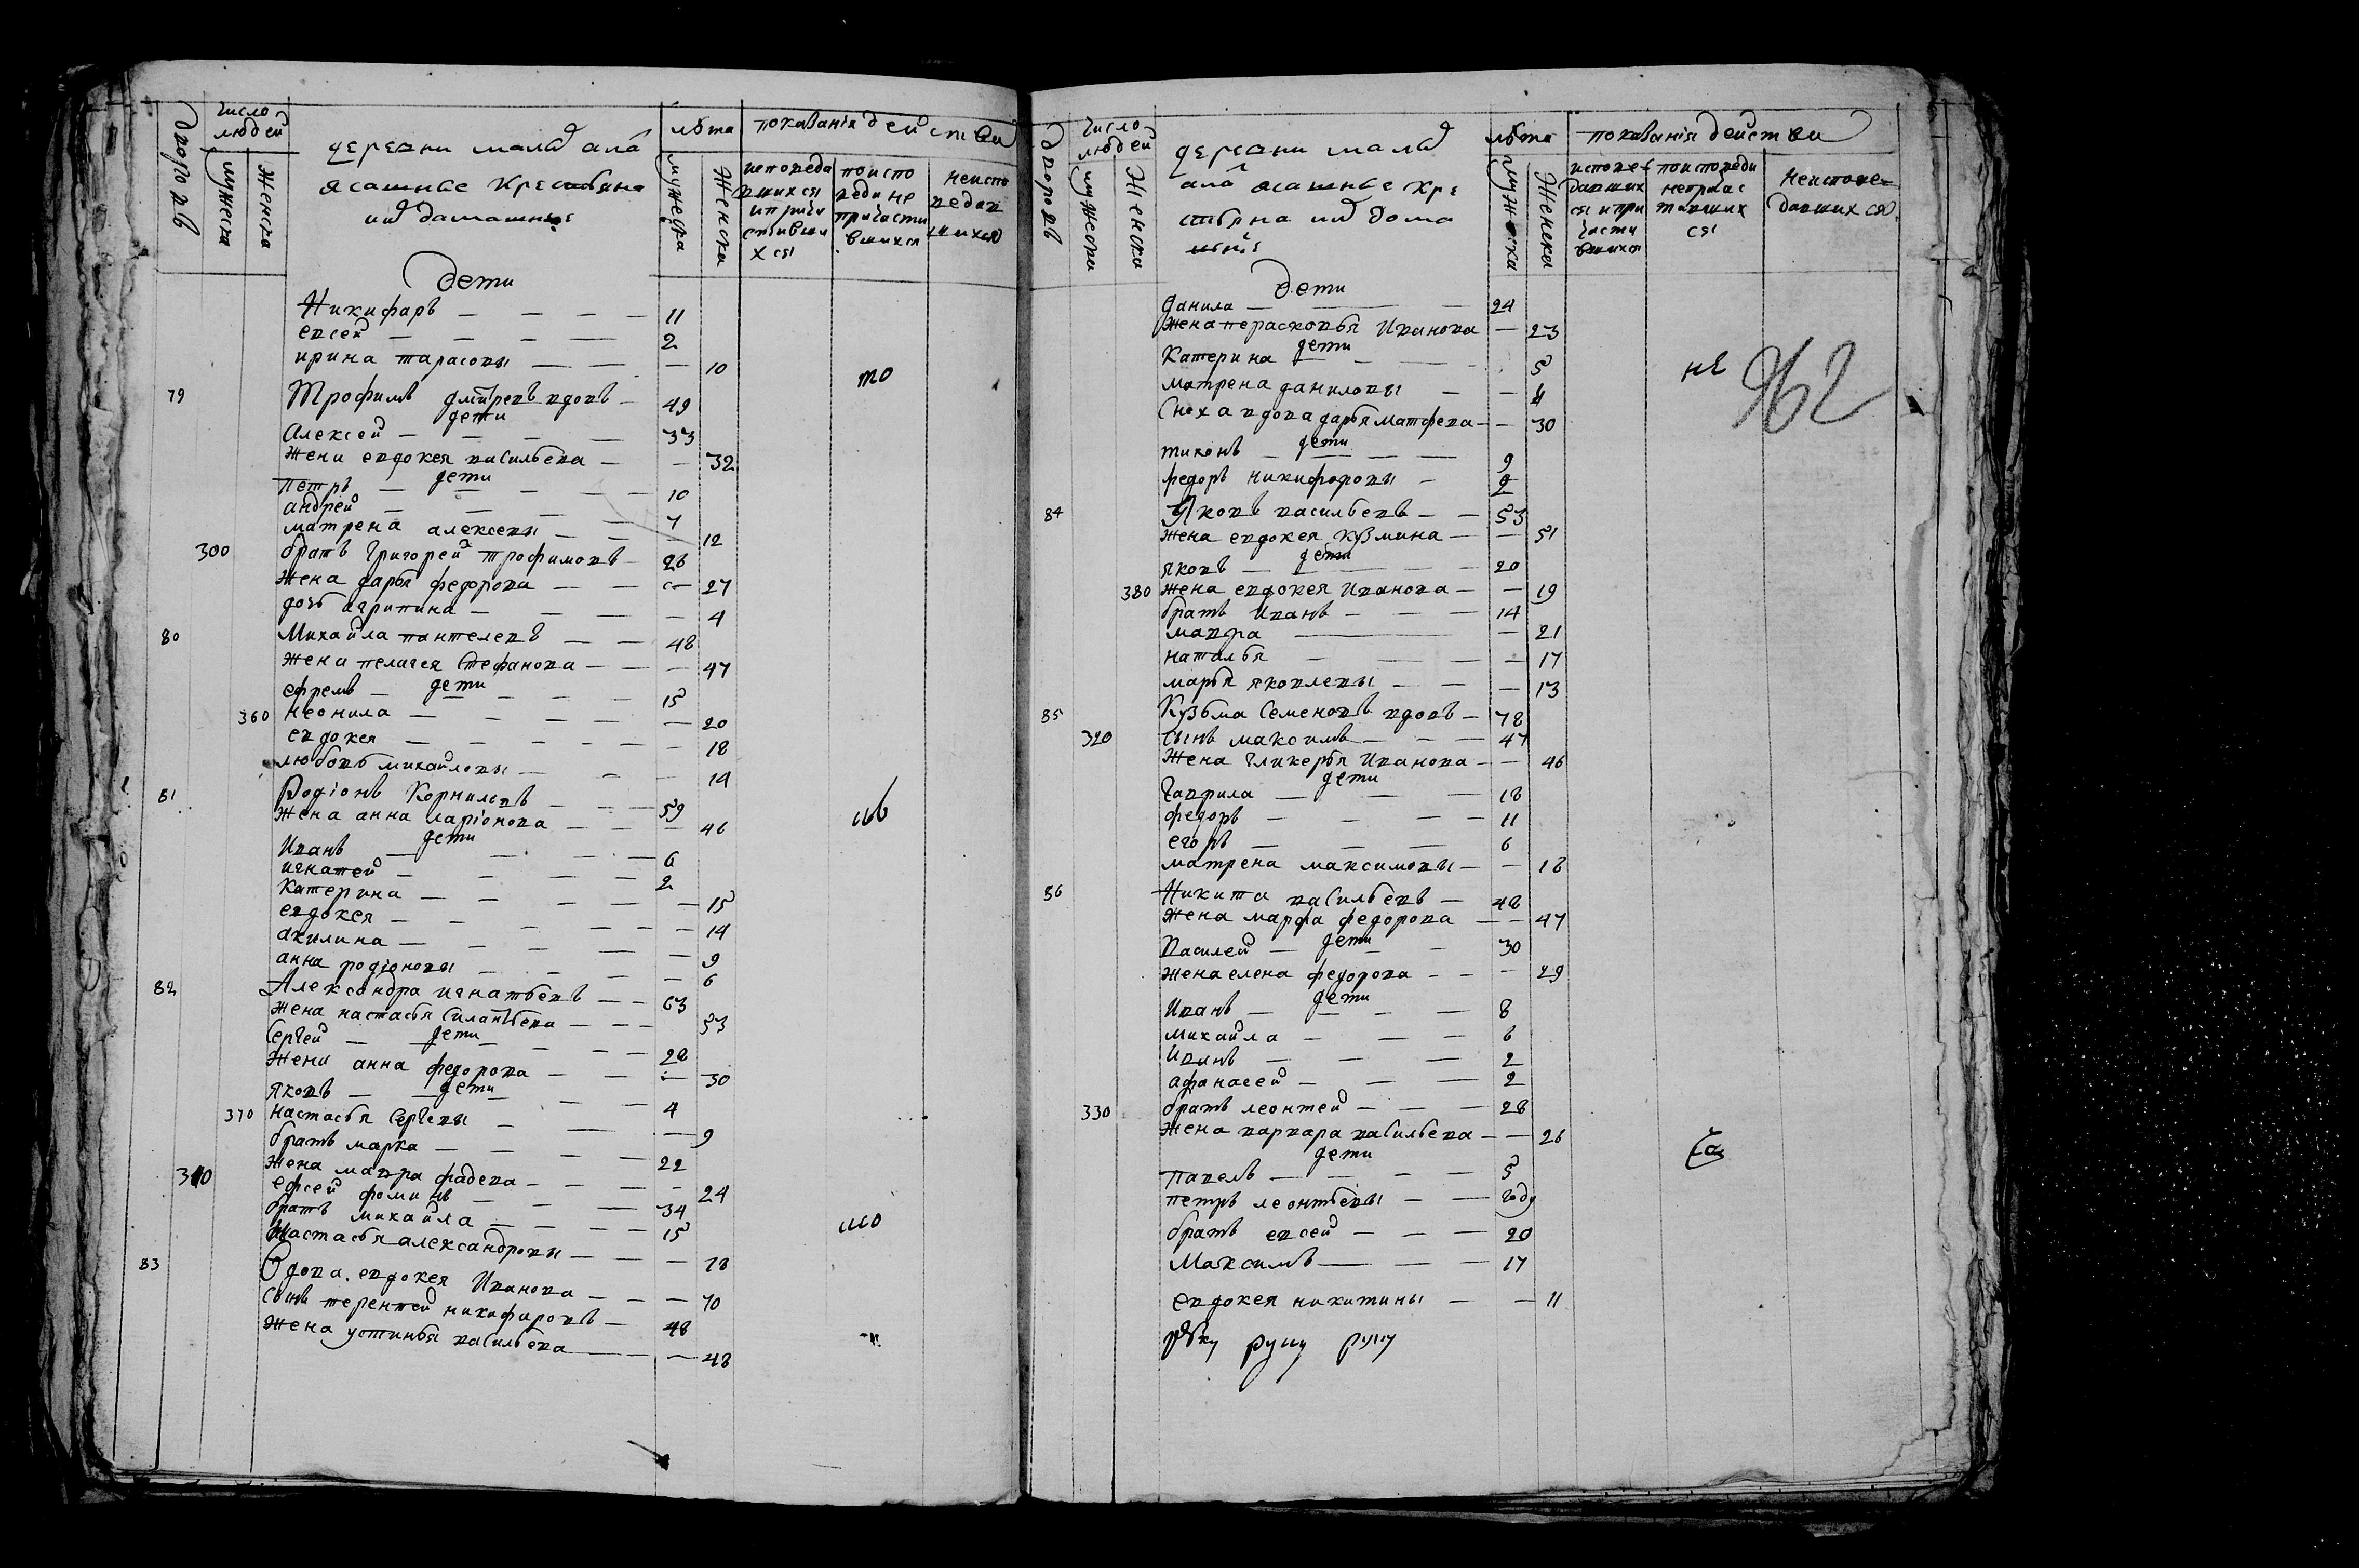 дворовъ
число людей
мужеска
женска
деревни мала
ясашные крестьяня
и их домашныя
лѣта
мужеска
женска
показания действи
исповеда
вшихся
и прича
стивши
хся
по испо
веди не
причасти
вшихся
неиспо
ведав
шихся
Дети
Никифаръ — 11
евсей — 2
ирина тарасовы — 10
79 Трофимъ дмитревъ вдовъ — 49
дети
Алексей — 33
жена евдокея васильева — 32
дети
петръ — 10
андрей — 7
матрена алексевы — 12
300 братъ григорей трофимовъ — 26
жена дарья федорова — 27
дочь агрипина — 4
80 Михайла пантелевъ — 48
жена пелагея Стефанова — 47
дети
ефремъ — 15
360 неонила — 20
евдокея — 18
любовь михайловы — 14
81 Родионъ Корниловъ — 59
жена анна ларионова — 46
дети
Иванъ — 6
игнатей — 2
катерина — 15
евдокея — 14
акилина — 9
анна родионовы — 6
82 Александра игнатьевъ — 63
жена настасья Силантьева — 53
дети
Сергей — 28
жена анна федорова — 30
дети
яковъ — 4
370 настасья Сергевы — 9
братъ марка — 22
жена мавра фадева — 24
310 ефсей фоминъ — 34
братъ михайла — 15
Настасья александровы — 18
83 Вдова евдокея Иванова — 70
Сынъ терентей никифировъ — 48
жена устинья васильева — 48
то
дворовъ
число людей
мужеска
женска
деревни мала
ясашные кре
стьяня и их дома
шныя
лѣта
мужеска
женска
показания действи
исповеᲂ
давших
ся и при
части
вшихся
по исповеди
неприᲂчас
тивших
ся
неисᲂпове
давшихся
Дети
данила — 24
жена пераскопья Иванова — 23
дети
Катерина — 5
матрена даниловы — 4
Сноха вдова дарья матфева — 30
дети
тихонъ — 9
федоръ никифоровы — 2
84 Яковъ васильевъ — 53
жена евдокея кузмина — 51
дети
яковъ — 20
380 жена евдокея Иванова — 19
братъ Иванъ — 14
мавра — 21
наталья — 17
марья яковлевы — 13
85 Кузьма Семеновъ вдовъ — 78
320 Сынъ максимъ — 47
жена гликерья Иванова — 46
дети
гаврила — 18
федоръ — 11
егоръ — 6
матрена максимовы — 18
86 Никита васильевъ — 48
жена марфа федорова — 47
дети
василей — 30
жена елена федорова — 29
дети
Иванъ — 8
михайла — 6
Иванъ — 2
афанасей — 2
330 братъ леонтей — 28
жена варвара васильева — 26
дети
павелъ — 5
петръ леонтьевы — году
братъ евсей — 20
Максимъ — 17
евдокея никитины — 11
руку
не
962